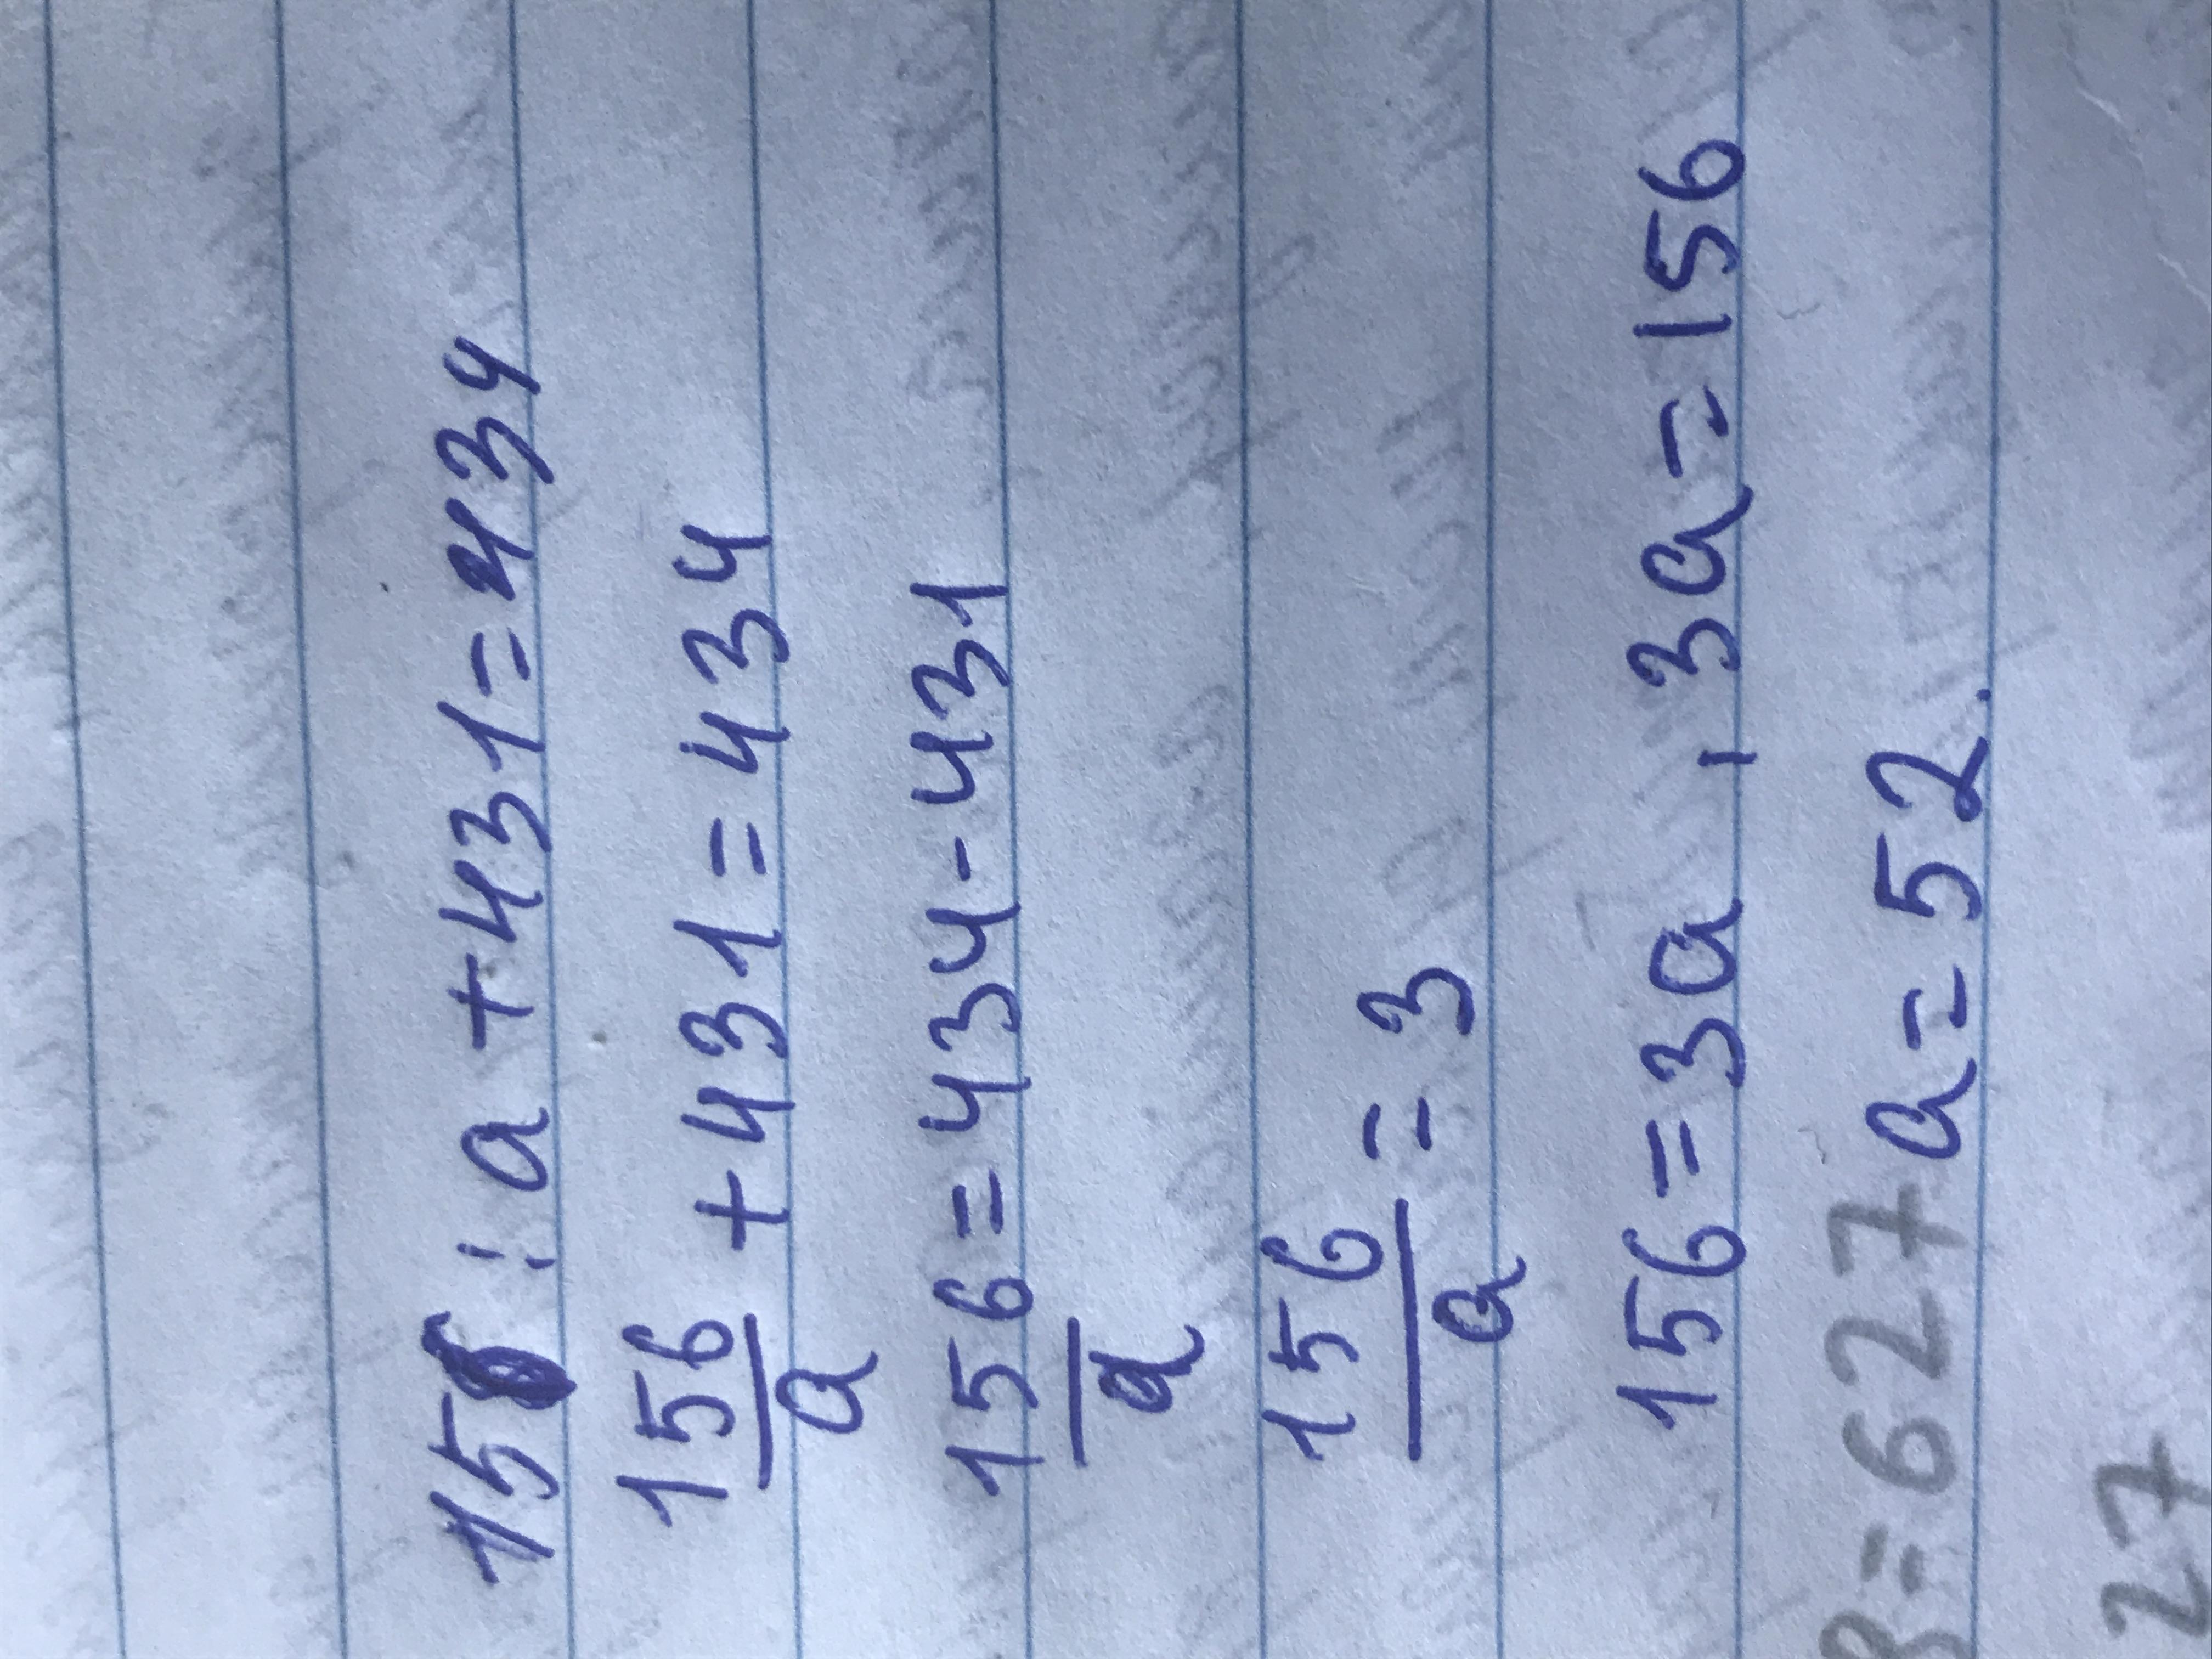 156 : a + 431 = 434
156/a + 431 = 434
156/a = 434 - 431
156/a = 3
156 = 3a, 3a = 156
a = 52.
= 627
27